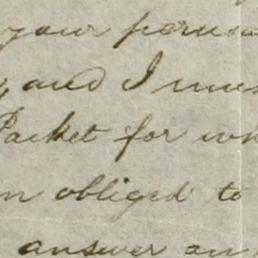 your perusa
, and I mus
Packet for wh
obliged to
answer an